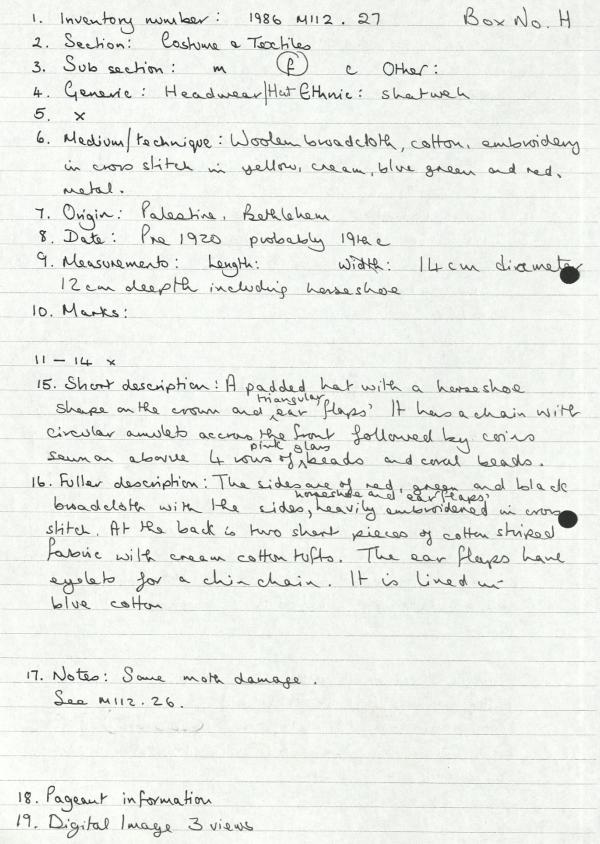 1. Inventory number: 1986 M112.27 Box No. H
2. Section: Costume & Textiles
3. Sub section: m f c Other:
4. Generic: Headwear/Hat Ethnic: shatweh
5. x
6. Medium/technique: Woolen broadcloth, cotton, embroidery
in cross stitch in yellow, cream, blue green and red,
metal.
7. Origin: Palestine, Bethlehem
8. Date: Pre 1920 probably 19th c
9. Measurements: Length: Width: 14cm diameter
12cm deepth including horseshoe
10. Marks:
11 - 14 x
15. Short description: A padded hat with a horseshoe
shape on the crown and triangular 'ear flaps' It has a chain with
circular amulets accross the front followed by coins
sewn on above 4 rows of pink glass beads and coral beads.
16. Fuller description: The sides are of red, green and black
broadcloth with the sides, horseshoe and 'ear flaps' heavily embroidered in cross
stitch. At the back is two short pieces of cotton striped
fabric with cream cotton tufts. The ear flaps have
eyelets for a chin chain. It is lined in
blue cotton
17. Notes: Some moth damage.
See M112.26.
18. Pageant information
19. Digital Image 3 views